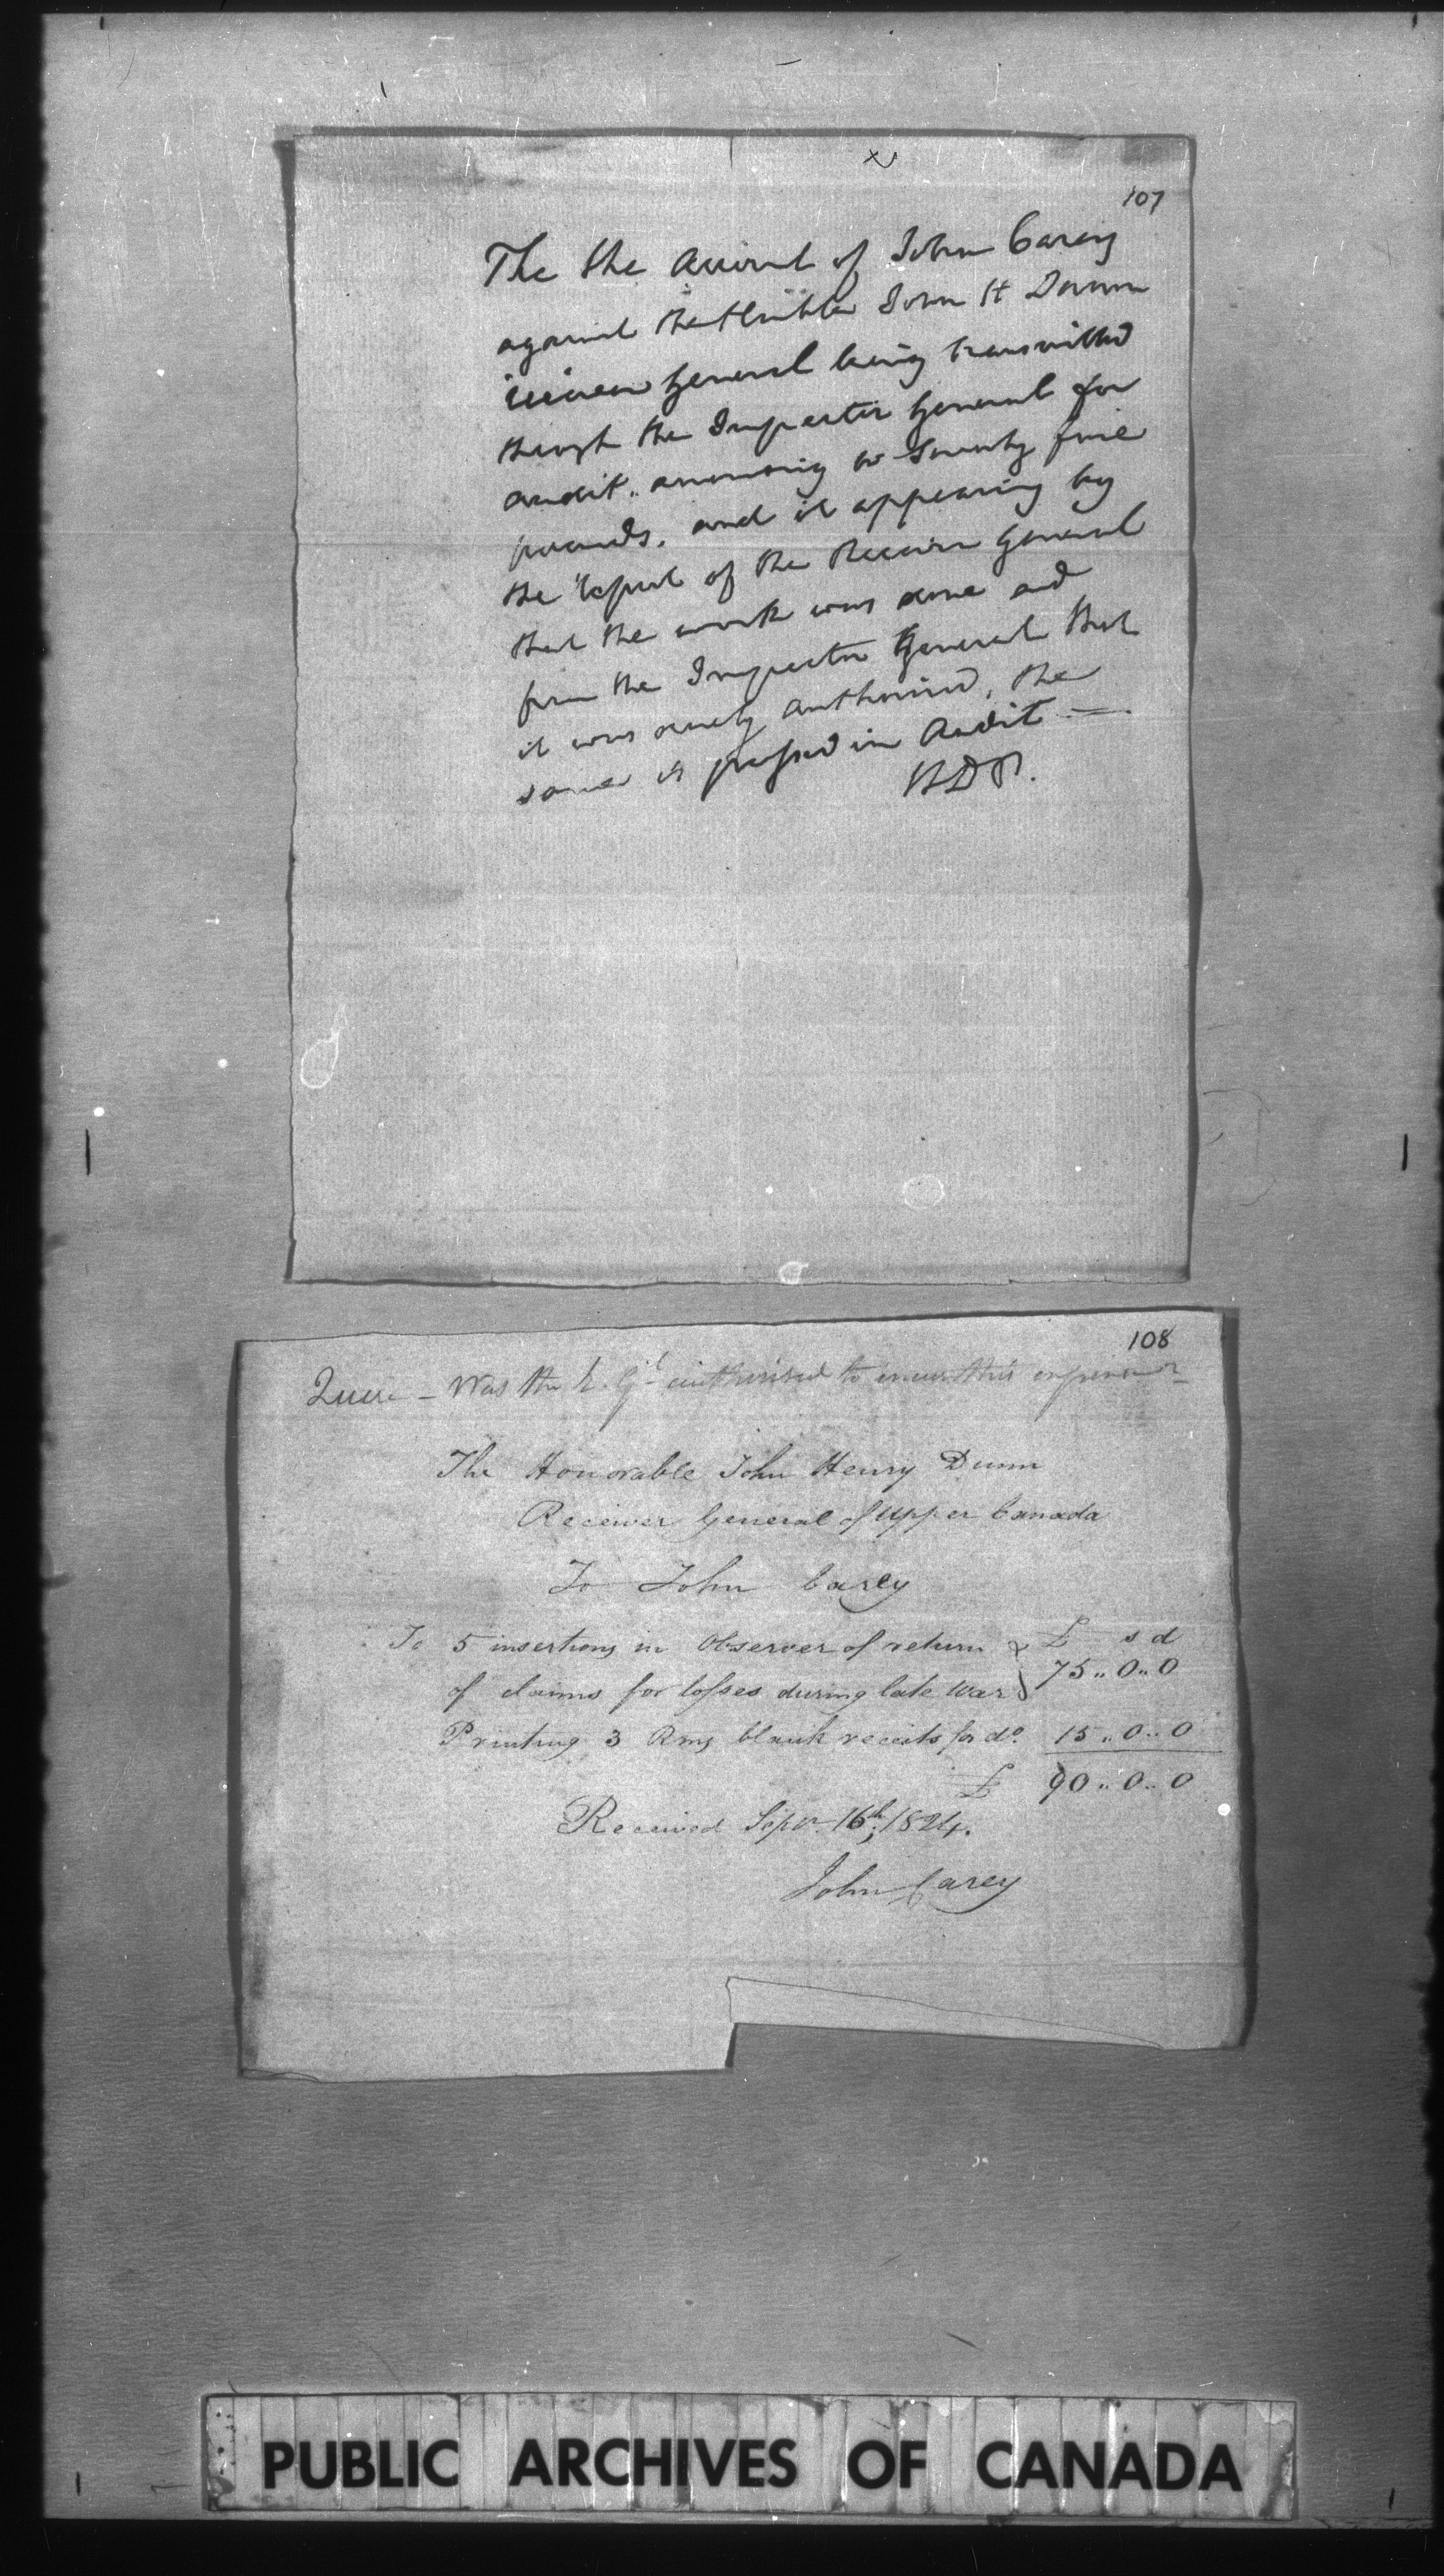 107
The the Account of John Carey
against the Hnble John H Dunn
General being transmitted
through the Inspector General for
audit. amounting to Seventy five
pounds. and it appearing by
the report of the Receiver General
that the work was done and
from the Inspector General that
it was duly authorised, the
same is passed in Audit
108
Quere - Was the R. Gl authorised to incur this expence
The Honorable John Henry Dunn
Receiver General of Upper Canada
To John Carey
To 5 insertions in Observer of return £ s d
of claims for losses during late War 75..0..0
Printing 3 Rms blank receits for do. 15..0..0
£ 90..0..0
Received Sepr. 16th, 1824.
John Carey
PUBLIC ARCHIVES OF CANADA